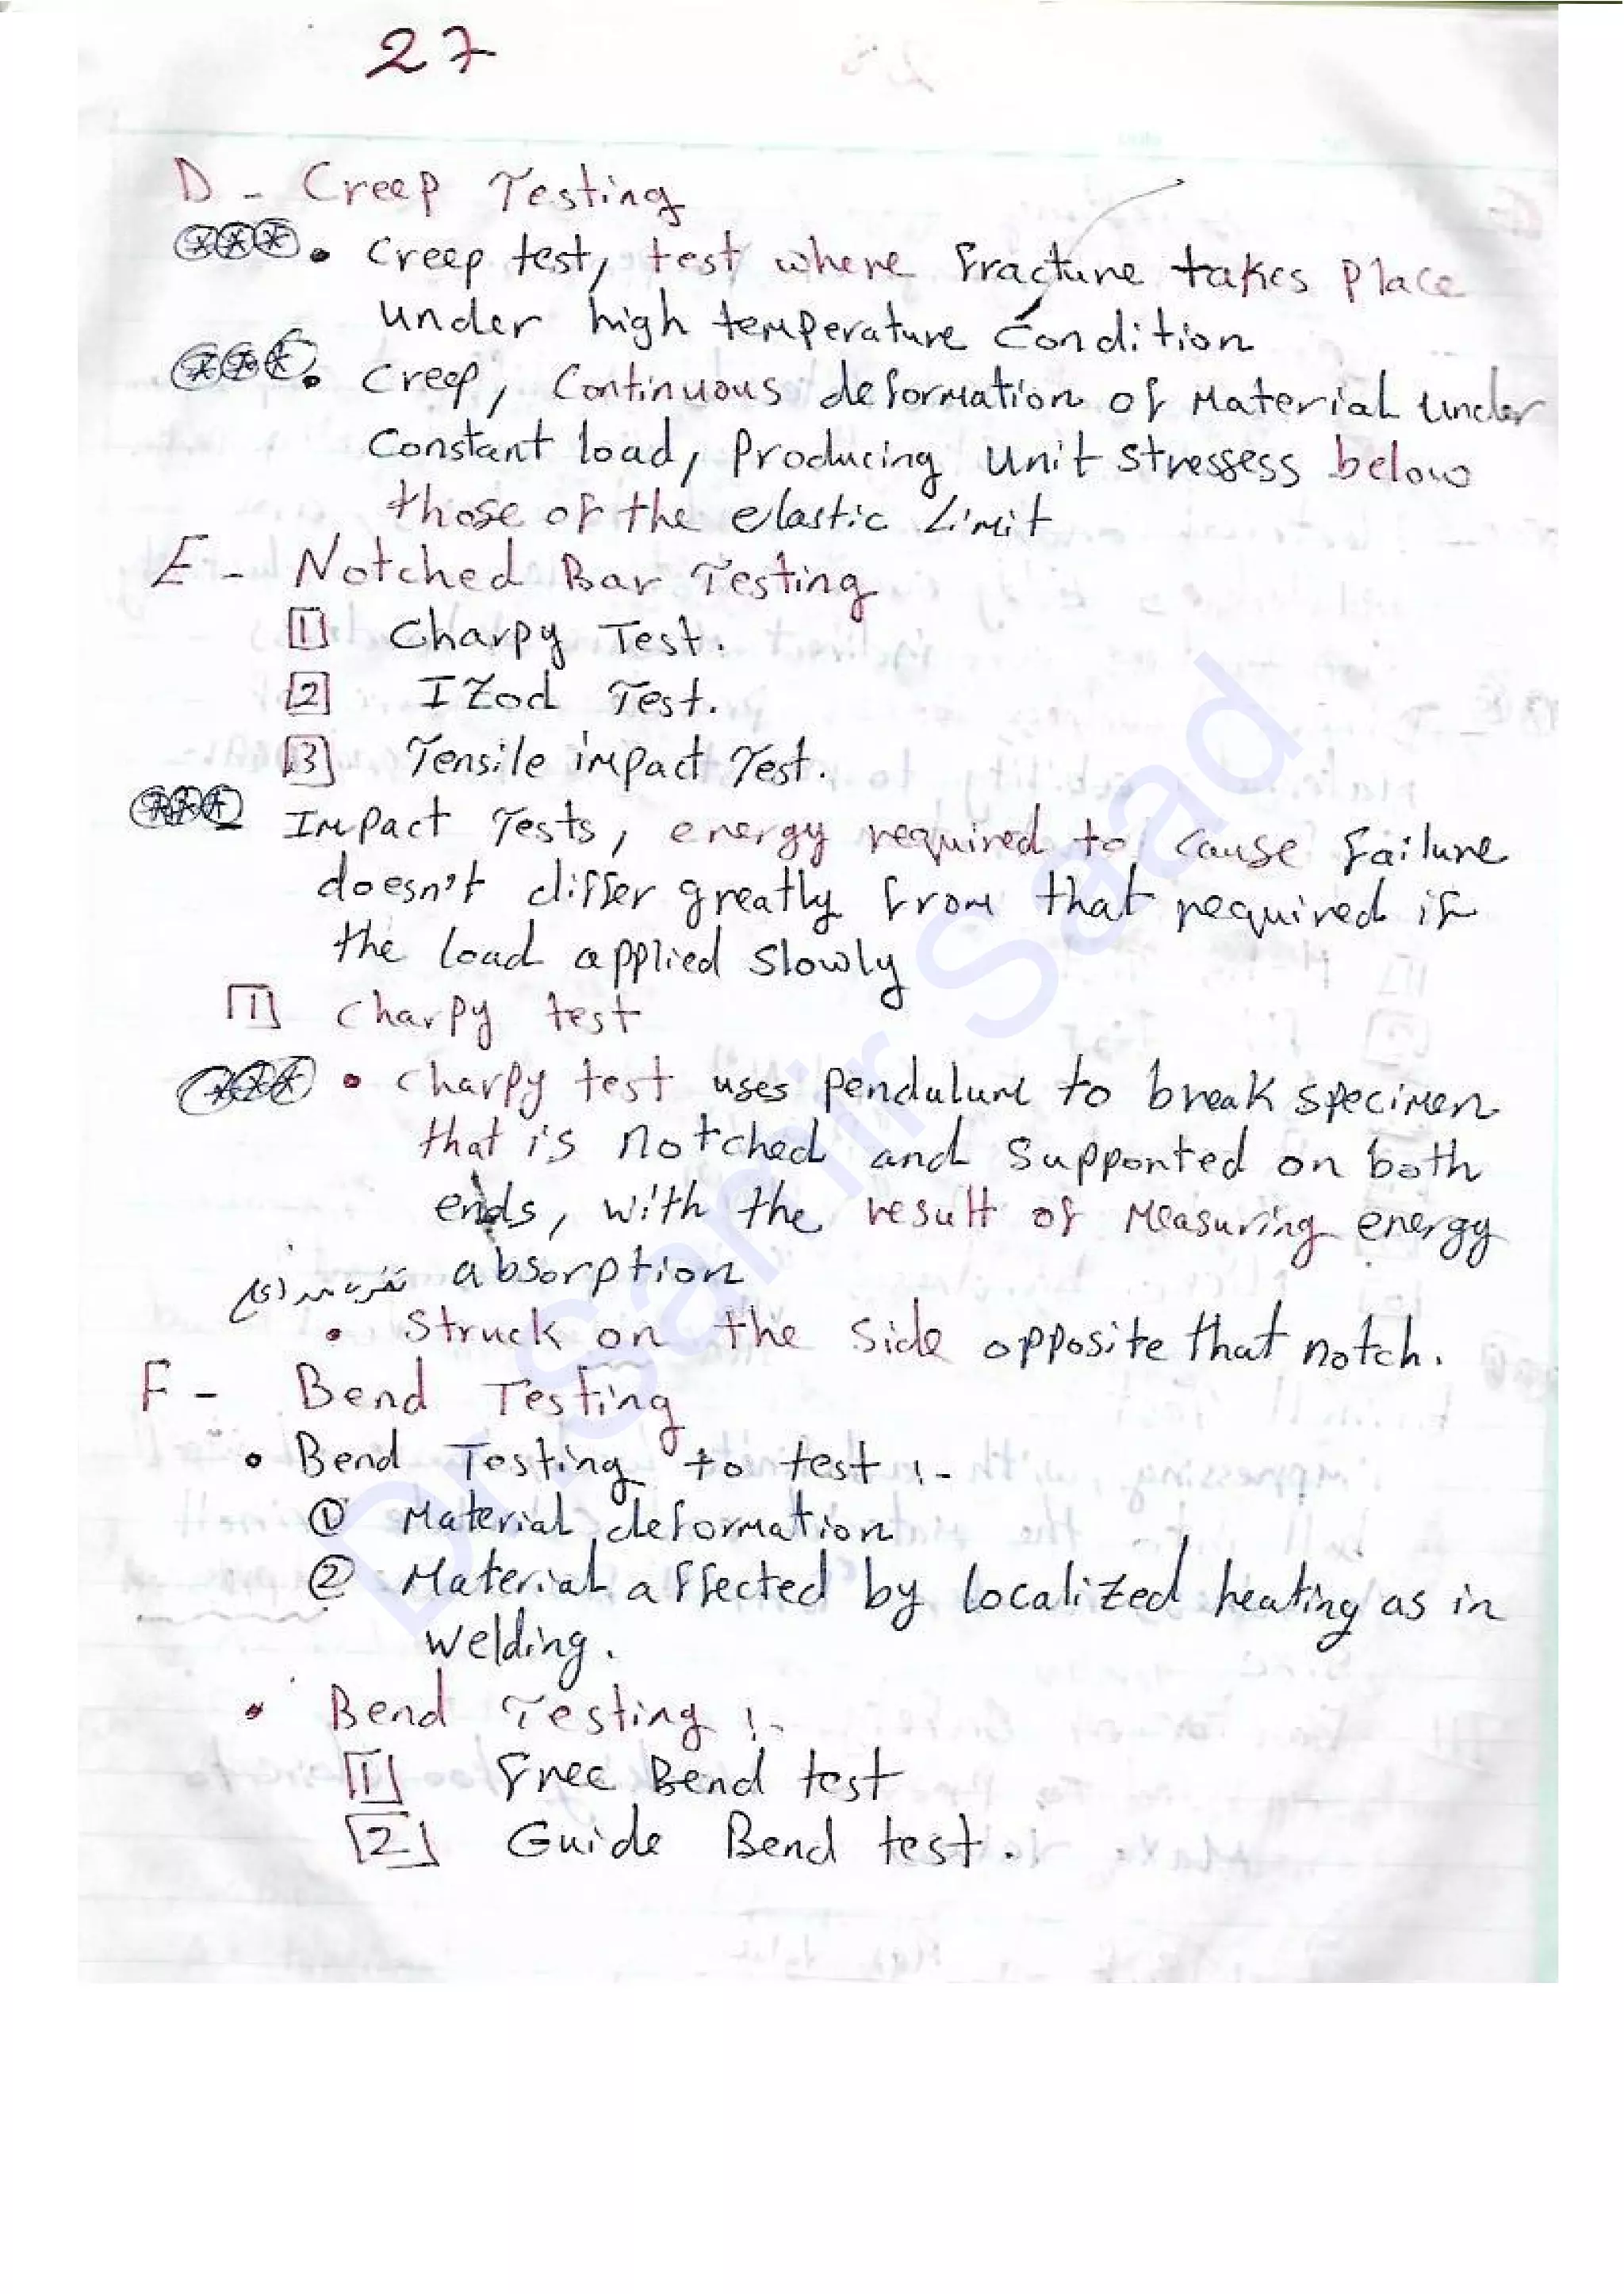 27
D - Creep Testing
• Creep test, test where fracture takes place
under high temperature Condition
• Creep, Continuous deformation of Material under
Constant load, Producing Unit stressess below
those of the elastic Limit
E - Notched Bar Testing
1 Charpy Test.
2 IZod Test.
3 Tensile impact Test.
Impact Tests, energy required to cause failure
doesn't differ greatly from that required if
the load applied slowly
1 Charpy test
• Charpy test uses pendulum to break specimen
that is notched and supported on both
ends, with the result of Measuring energy
absorption
• Struck on the side opposite that notch.
F - Bend Testing
• Bend Testing to test :-
① Material deformation
② Material affected by localized heating as in
welding.
• Bend Testing :-
1 Free Bend test
2 Guide Bend test.
Dr Samir Saad